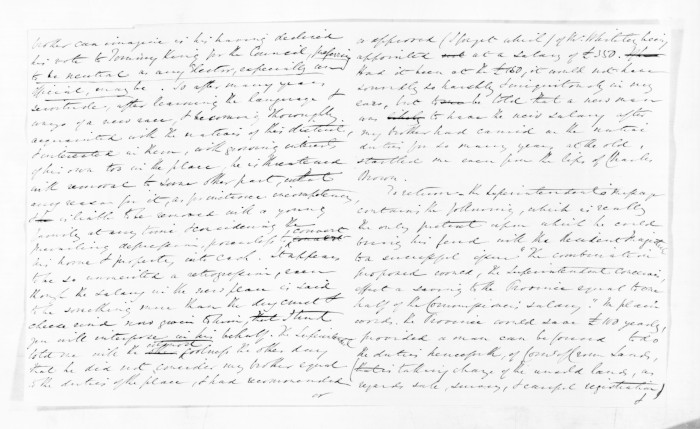 brother can imagine is his having declined
his vote to Tommy King for the Council, preferring
to be neutral as any Elector, especially an
Official, may be. So after many years
servitude, after learning the language &
ways of a new race, & becoming thoroughly
acquainted with the natives of this district,
& interested in them, with growing interests
of his own too in the place, he is threatened
with removal to some other part, without
any reason for it, as for instance incompetency,
& is liable to be removed with a young
family at any time & considering the
prevailing depression, powerless to convert
his house & property into cash. It appears
to me so unmerited a retrogression, even
though the salary in the new place is said
to be something more than the dry crust &
cheese rind now given to him that I trust
you will interpose in his behalf. The Superintendent
told me with the utmost coolness the other day
that he did not consider my brother equal
to the duties of the place, & had recommended
or
a approved (I forget which) of Mr. Whiteley being
appointed at a salary of £350.
Had it been at the £160, it would not have
sounded so harshly & iniquitously in my
ears, but to be told that a new man
was to have the new salary after
my brother had carried on the native
duties for so many years at the old,
startled me even from the lips of Charles
Brown.
To return - the Superintendent's message
contains the following, which is really
the only pretext upon which he could
bring his feud with the Resident Magistrate
to a successful issue: "The combination
proposed would, the Superintendent conceives,
effect a saving to the Province equal to one
half of the Commissioner's salary." In plain
words, the Province would save £100 yearly,
provided a man can be found to do
the duties henceforth of Comr of Crown Lands,
in taking charge of the unsold lands, as
regards sale, survey, & careful registration,